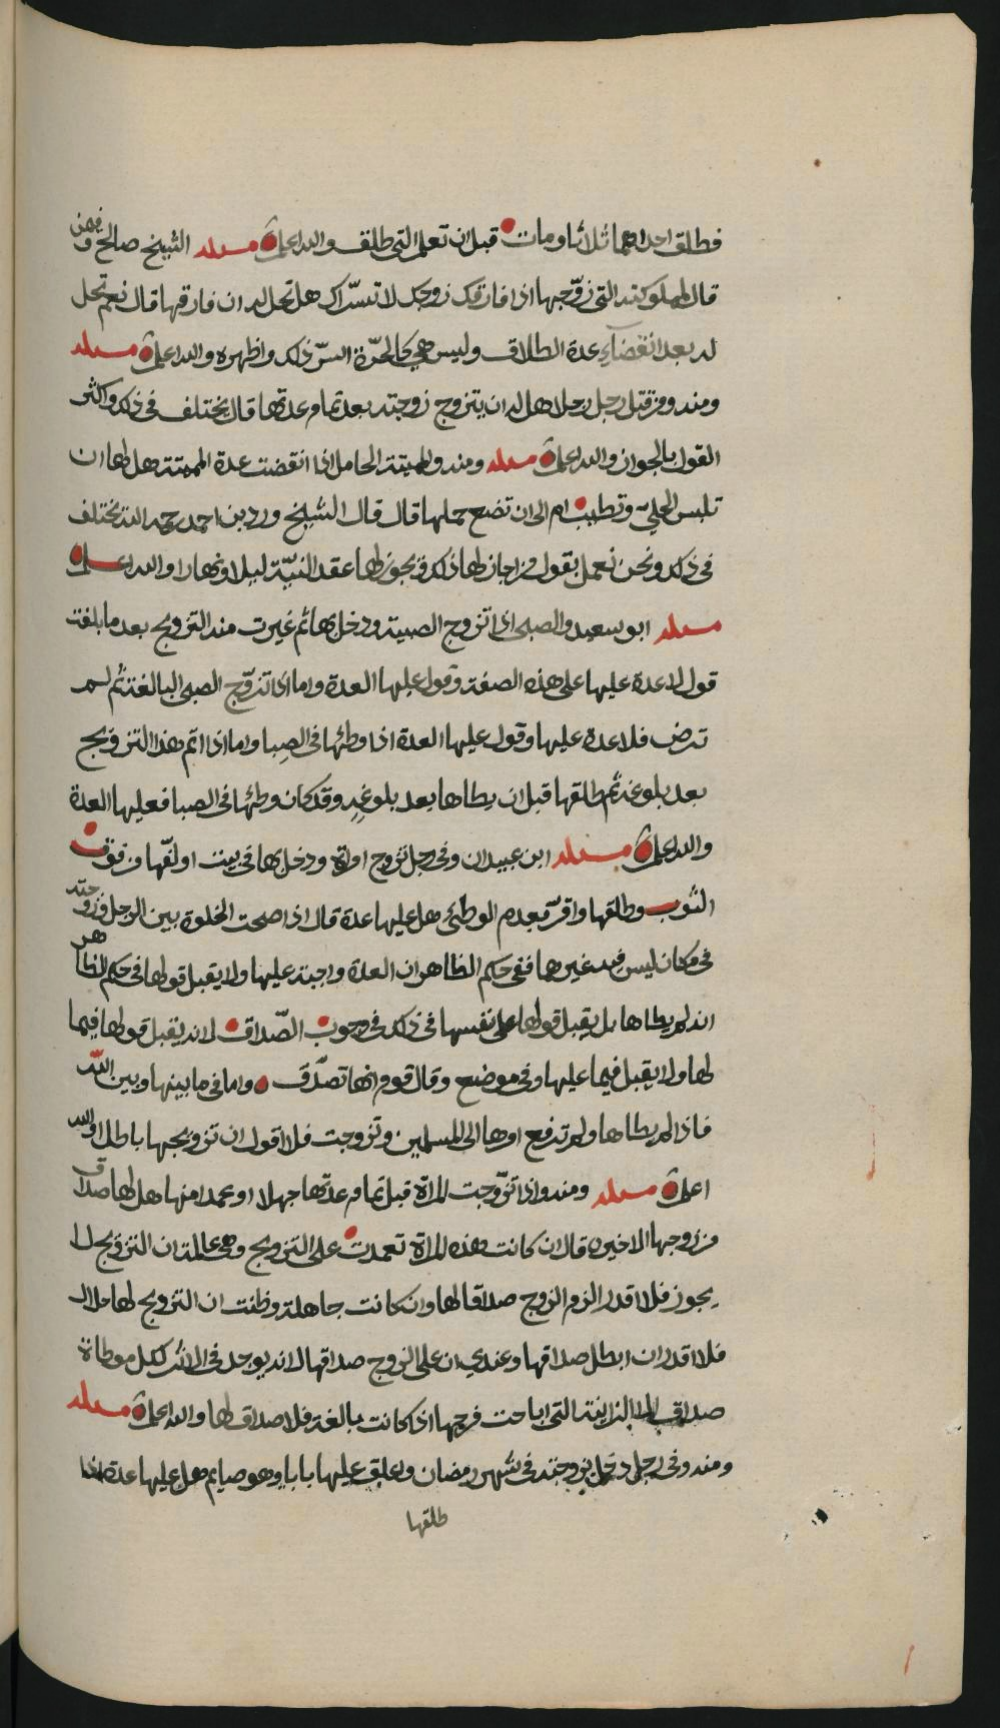 فطلق احداهما ثلاثا ومات قبل ان تعلم التي طلق والله اعلم مسئله الشيخ صالح وفيمن
قال لمملوكته التي زوّجها اذا فارقك زوجك لاتسرّاك هل تحل له ان فارقها قال نعم تحل
له بعد انقضاء عدة الطلاق وليس هي كالحرّة السرّ ذلك واظهره والله اعلم مسئله
ومنه ومن قتل رجل رجلا هل له ان يتزوج زوجته بعد تمام عدتها قال يختلف في ذلك واكثر
القول بالجواز والله اعلم مسئله ومنه والمميتة الحامل اذا انقضت عدة المميتة هل لها ان
تلبس الحلي وتطيب ام الى ان تضع حملها قال قال الشيخ ورد بن احمد رحمه الله يختلف
في ذلك ونحن نعمل بقول من اجاز لها ذلك ويجوز لها عقد النيّة ليلا ونهارا والله اعلم
مسئله ابو سعيد والصبي اذا تزوج الصبية ودخل بها ثم غيرت منه التزويج بعد ما بلغت
قول لا عدة عليها على هذه الصفة وقول عليها العدة واما اذا تزوّج الصبي البالغة ثم لم
ترض فلا عدة عليها وقول عليها العدة اذا وطئها في الصبا واما اذا اتم هذا التزويج
بعد بلوغه ثم طلقها قبل ان يطاها بعد بلوغه وقد كان وطئها في الصبا فعليها العدة
والله اعلم مسئله ابن عبيدان وفي رجل تزوج امراة ودخل بها في بيت او لفّها من فوق
الثوب وطلقها واقرّ بعدم الوطئ هل عليها عدة قال اذا صحت الخلوة بين الرجل وزوجته
في مكان ليس فيه غيرهما ففي حكم الظاهر ان العدة واجبة عليها ولا يقبل قولها في حكم الظاهر
انه لم يطاها بل يقبل قولها على نفسها في ذلك في وجوب الصّداق لانه يقبل قولها فيما
لها ولا يقبل فيما عليها وفي موضع وقال قوم انها تصدّق واما في ما بينها وبين الله
فاذا لم يطاها ولم ترفع امرها الى المسلمين وتزوجت فلا اقول ان تزويجها باطل والله
اعلم مسئله ومنه واذا تزوّجت المراة قبل تمام عدتها جهلا او عمدا منها هل لها صداق
من زوجها الاخير قال ان كانت هذه المراة تعمدت على التزويج وهي عالمة ان التزويج لا
يجوز فلا اقدر الزم الزوج صداقا لها وان كانت جاهلة وظنت ان التزويج لها حلال
فلا اقدر ان ابطل صداقها وعندي ان على الزوج صداقها لانه يوجد في الاثر لكل موطاة
صداق الا الزانية التي اباحت فرجها اذا كانت بالغة فلا صداق لها والله اعلم مسئله
ومنه وفي رجل دخل بزوجته في شهر رمضان واغلق عليها بابا وهو صايم هل عليها عدة اذا
طلقها